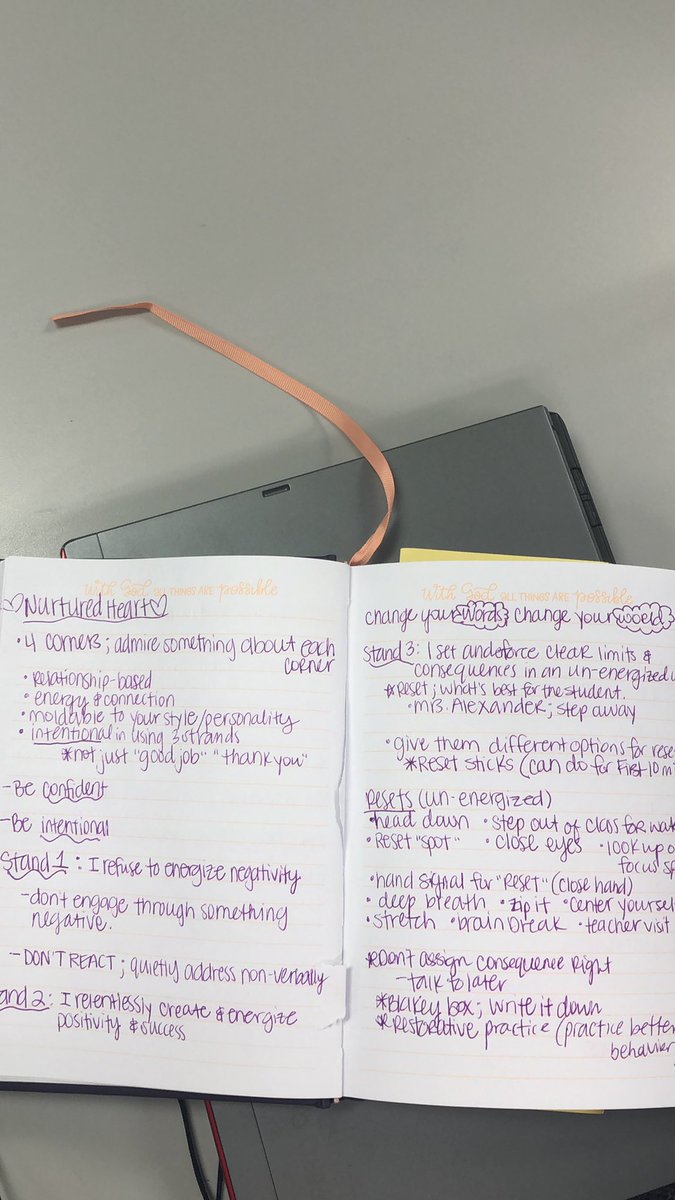 With God, ALL THINGS ARE possible
♡Nurtured Heart♡
• 4 corners; admire something about each
corner
• Relationship-based
• energy & connection
• moldable to your style/personality
• intentional in using 3 strands
*not just "good job" "thank you"
-Be confident
-Be intentional
Stand 1: I refuse to energize negativity
-don't engage through something
negative.
- DON'T REACT; quietly address non-verbally
and 2: I relentlessly create & energize
positivity & success
With God, ALL THINGS ARE possible
change your words, change your world
Stand 3: I set and enforce clear limits &
consequences in an un-energized
*Reset; what's best for the student.
• Mrs. Alexander; step away
• give them different options for rese
*Reset sticks (can do for First 10 m
Resets (un-energized)
• head down • step out of class for wat
• Reset "spot" • close eyes • look up o
focus sp
• hand signal for "Reset" (close hand)
• deep breath • zip it • center yoursel
• stretch • brain break • teacher visit
*Don't assign consequence right
-talk to later
*Blakey box; write it down
*Restorative practice (practice better
behavior